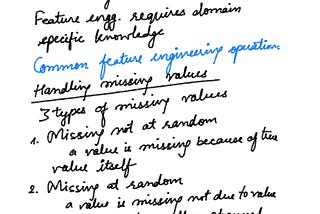 Feature engg. requires domain
specific knowledge
Common feature engineering operation.
Handling missing values
3 types of missing values
1. Missing not at random
a value is missing because of true
value itself
2. Missing at random
a value is missing not due to value